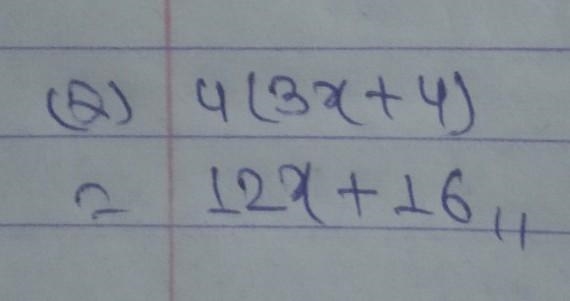 (Q) 4(3x+4)
= 12x+16,,